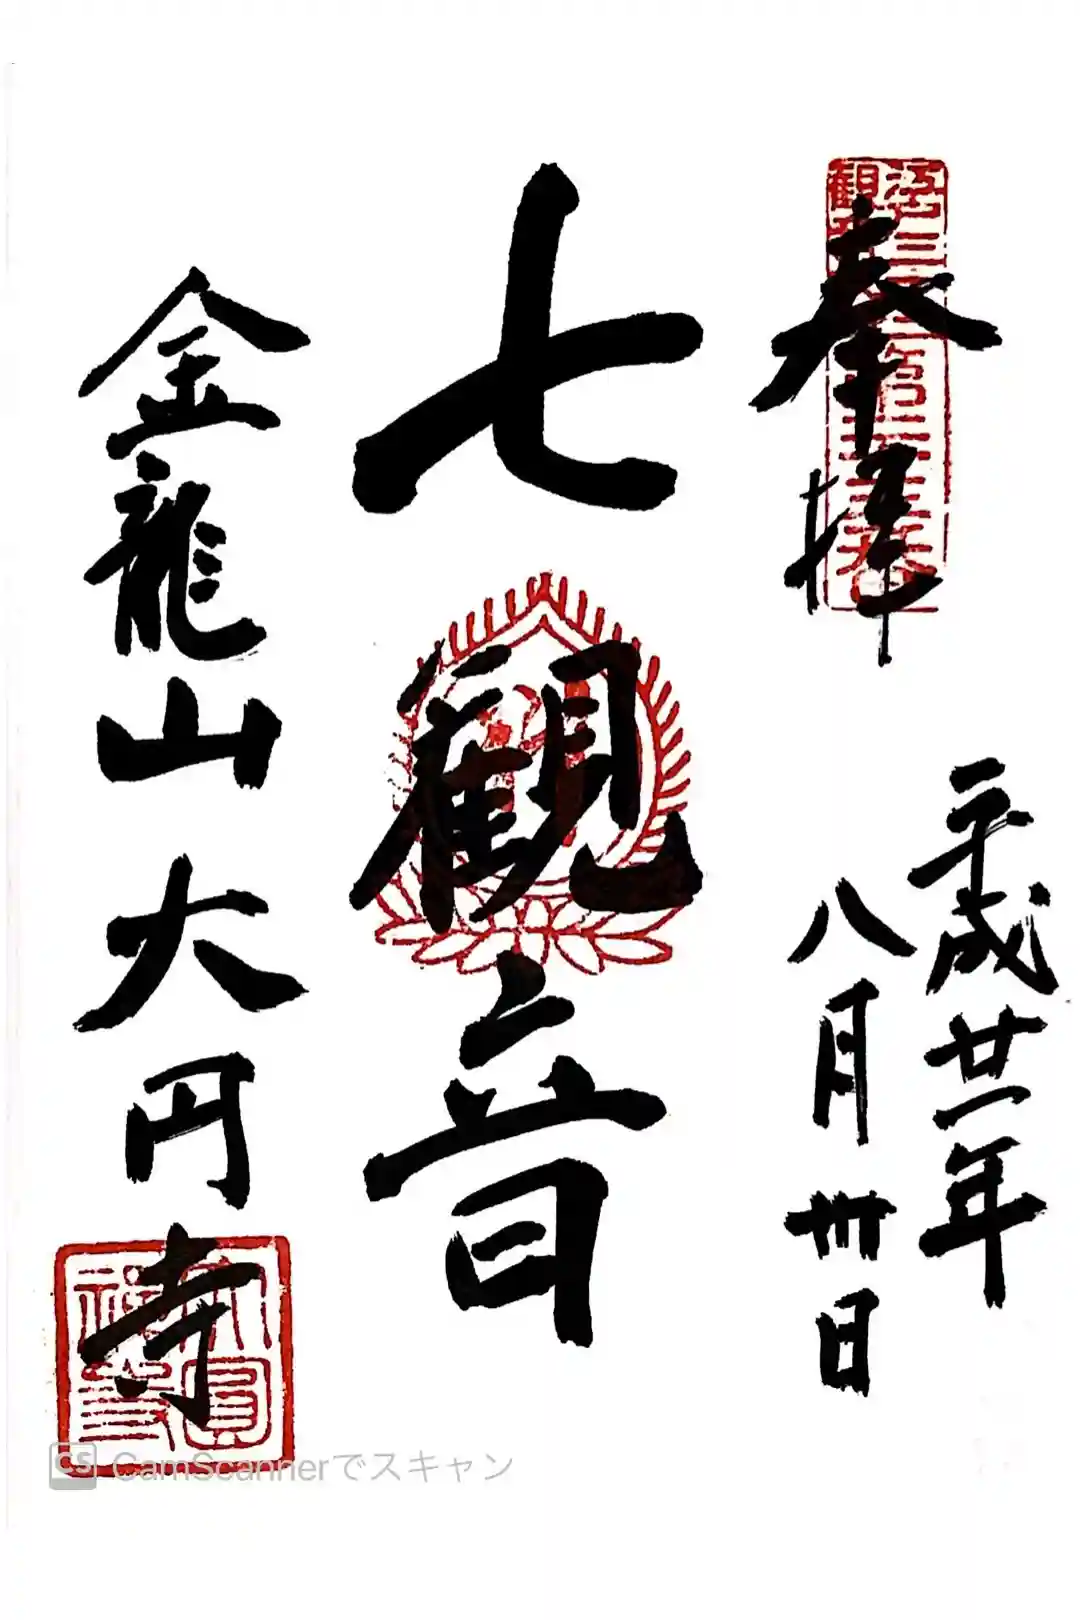 奉拝
平成廿一年
八月卅日
七觀音
金龍山大円寺
CS CamScannerでスキャン